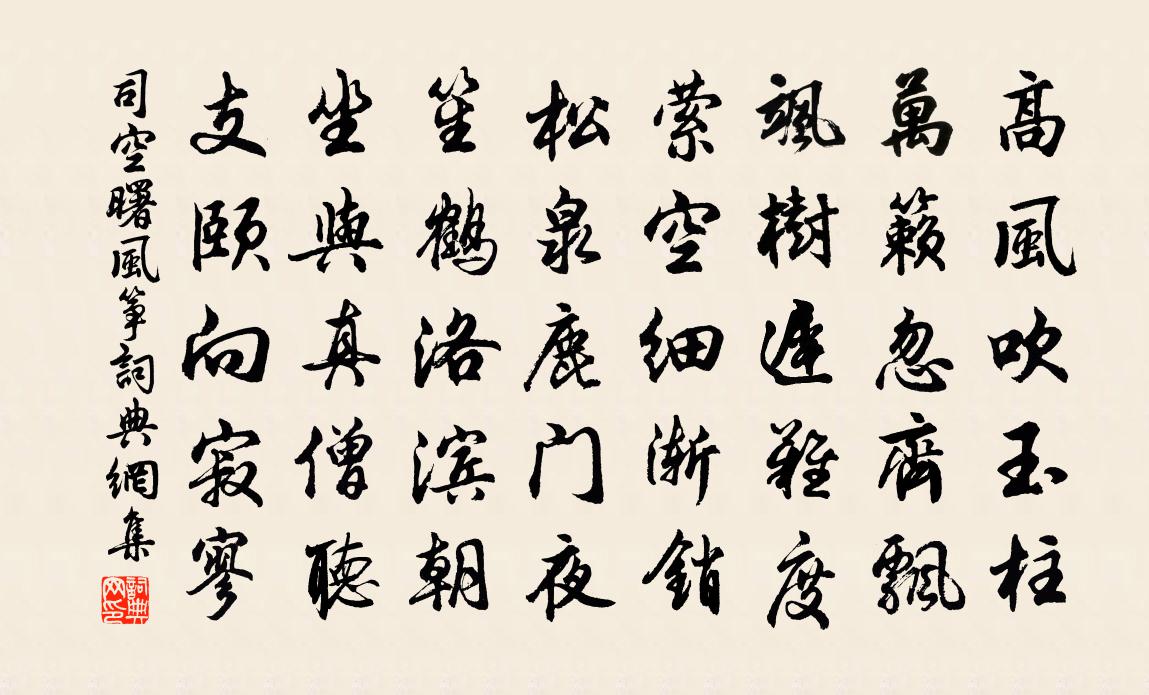 高風吹玉柱
萬籟忽齊飄
颯樹遲難度
縈空細漸銷
松泉鹿门夜
笙鶴洛滨朝
坐與真僧聽
支頤向寂寥
司空曙風筝詞典網集
詞典网印